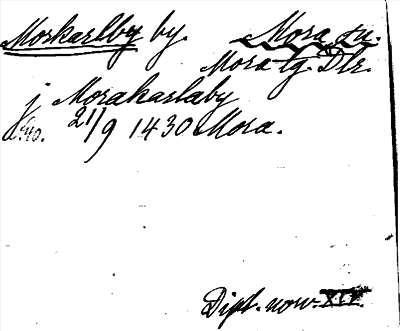 Morkarlby by. Mora sn.
Mora tg. Dlr.
j Morakarlaby
21/9 1430 Mora.
Dipl. norv. XVI.